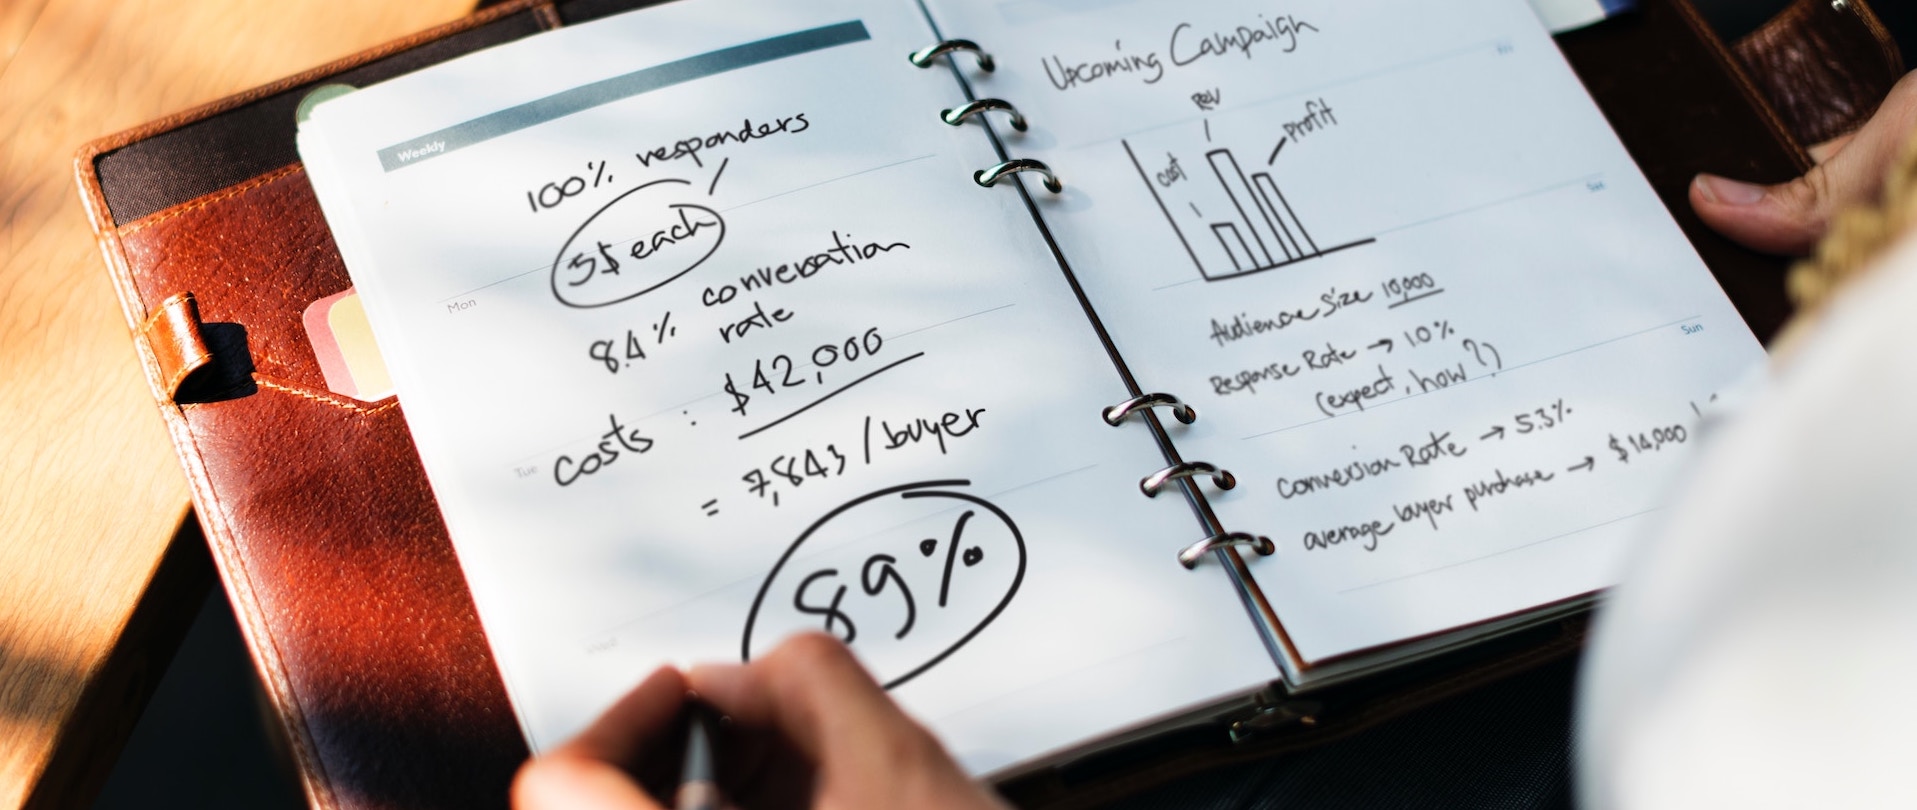 Weekly
100% responders
5$ each
Mon
8.4% conversation
rate
Tue
costs : $42,000
= 7,843 / buyer
89%
Upcoming Campaign
Fri
Rev
cost
Profit
Sat
Audience Size 10,000
Response Rate → 1.0%
(expect, how?)
Sun
Conversion Rate → 5.3%
average buyer purchase → $14,000